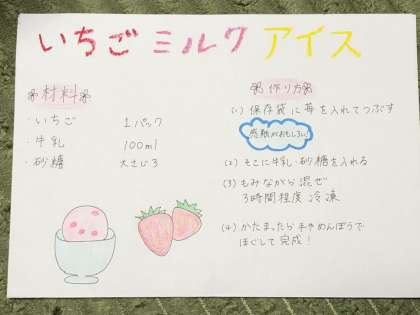 いちごミルクアイス
材料
・いちご 1パック
・牛乳 100ml
・砂糖 大さじ3
作り方
(1) 保存袋に苺を入れてつぶす
感触がおもしろい!
(2) そこに牛乳・砂糖を入れる
(3) もみながら混ぜ
3時間程度 冷凍
(4) かたまったら手やめんぼうで
ほぐして完成!